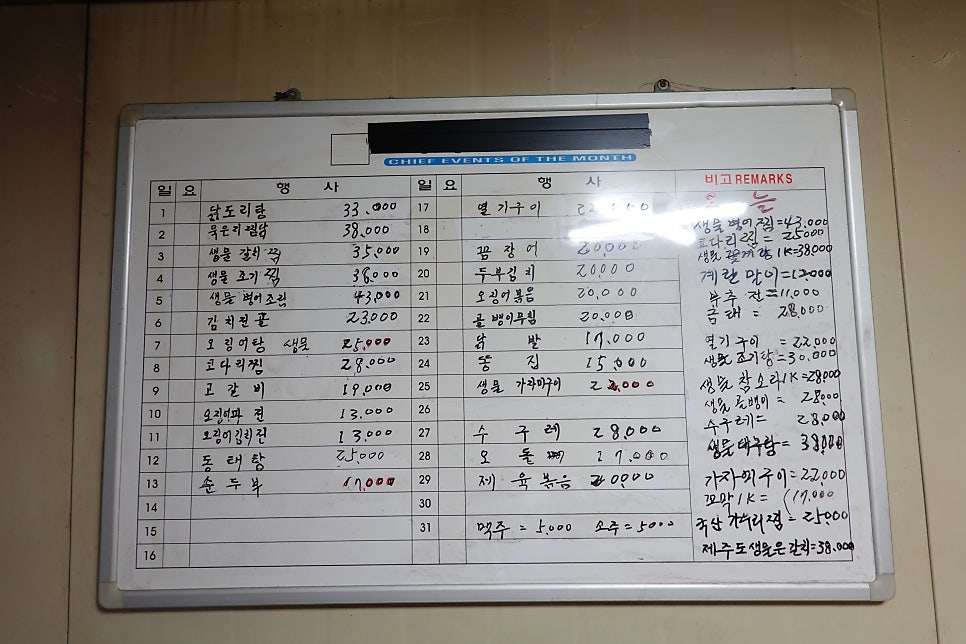 CHIEF EVENTS OF THE MONTH
일 요 행 사 일 요 행 사 비고 REMARKS
1 닭도리탕 33.000
2 묵은지찜닭 38.000
3 생물 갈치 찜 35,000
4 생물 조기 찜 38,000
5 생물 병어조림 43,000
6 김치전골 23,000
7 오징어탕 생물 25,000
8 코다리찜 28.000
9 고갈비 19,000
10 오징어파전 13.000
11 오징어김치전 13.000
12 동태탕 25,000
13 순두부 17,000
14
15
16
17 열기구이 22,000
18
19 꼼장어 20,000
20 두부김치 20,000
21 오징어볶음 20,000
22 골뱅이무침 20,000
23 닭발 17,000
24 똥집 15,000
25 생물 가자미구이
26
27 수구레 28,000
28 오돌뼈 17,000
29 제육볶음 20,000
30
31 맥주=5,000 소주=5000
오늘
생물병어찜=43.000
코다리찜=25000
생물꽃게탕 1K=38,000
계란말이=12,000
부추전=11,000
금태=28,000
열기구이=22,000
생물조기탕=30,000
생물참소라1K=28,000
생물골뱅이=28,000
수구레=28,000
생물대구탕=38,000
가자미구이=22,000
꼬막1K=17,000
국산가오리찜=25,000
제주도생물은갈치=38.000